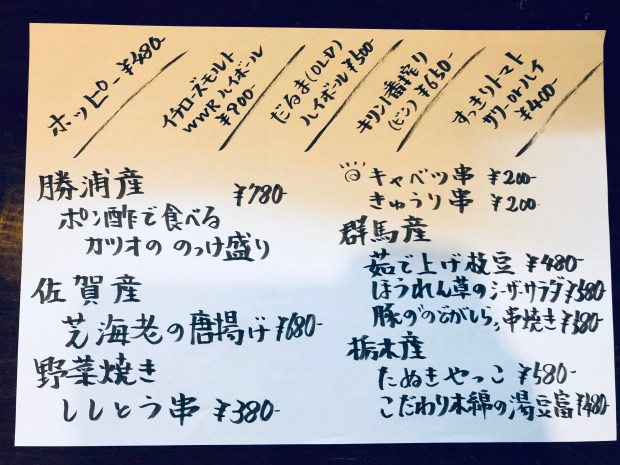 ホッピー ¥480-
イチローズモルト
WWR ハイボール
¥900-
だるま(OLD)
ハイボール ¥500-
キリン一番搾り
(ビン) ¥650-
すっきりトマト
サワー or ハイ
¥400-
勝浦産 ¥780-
ポン酢で食べる
カツオの のっけ盛り
佐賀産
芝海老の唐揚げ ¥680-
野菜焼き
ししとう串 ¥380-
キャベツ串 ¥200-
きゅうり串 ¥200-
群馬産
茹で上げ枝豆 ¥480-
ほうれん草のシーザーサラダ ¥580-
豚の"のどがしら"串焼き ¥380-
栃木産
たぬきやっこ ¥580-
こだわり木綿の湯豆富 ¥480-